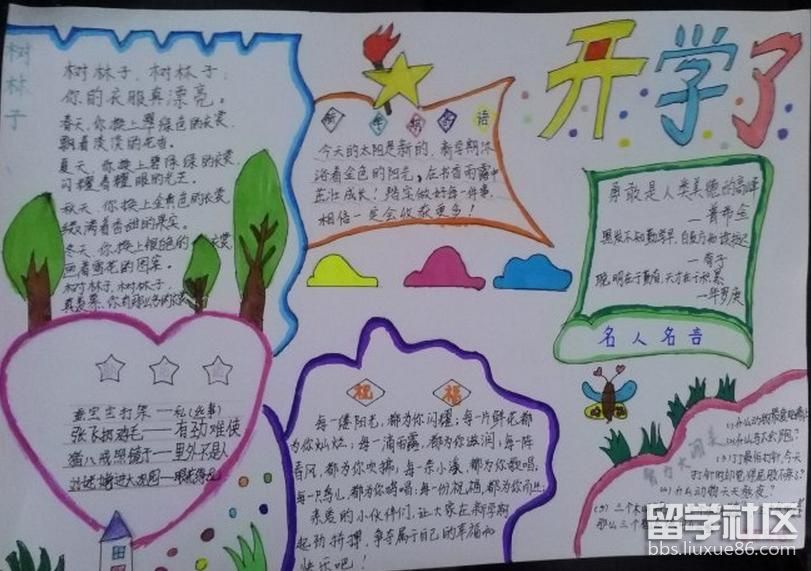 开学了
树林子
树林子，树林子，
你的衣服真漂亮。
春天，你换上翠绿色的衣裳，
飘着淡淡的花香。
夏天，你换上碧绿绿的衣裳，
闪耀着耀眼的光芒。
秋天，你换上金黄色的衣裳，
缀满着香甜的果实。
冬天，你换上银色的衣裳，
画着雪花的图案。
树林子，树林子，
新学期寄语
今天的太阳是新的，新学期沐
浴着金色的阳光，在书香雨露中
茁壮成长！踏实做好每一件事，
相信一定会收获更多！
勇敢是人类美德的高峰
—普希金
黑发不知勤学早，白首方悔读书迟
聪明在于勤奋，天才在于积累
—华罗庚
名人名言
蚕宝宝打架——私(丝事)
张飞拔鸡毛——有劲难使
猪八戒照镜子——里外不是人
祝福
每一缕阳光，都为你闪耀；每一片鲜花都
为你灿烂；每一滴雨露，都为你滋润；每一阵
春风，都为你吹拂；每一条小溪，都为你歌唱；
每一只鸟儿，都为你鸣唱；每一份祝福，都为你而
亲爱的小伙伴们，让大家在新学期
起劲拼搏，争夺属于自己的幸福和
快乐吧！
智力大闯关
(3)丁丁最怕打针，今天
(4)什么动物天天熬夜？
(5)三个
那么三个
留学社区
bbs.liuxue86.com